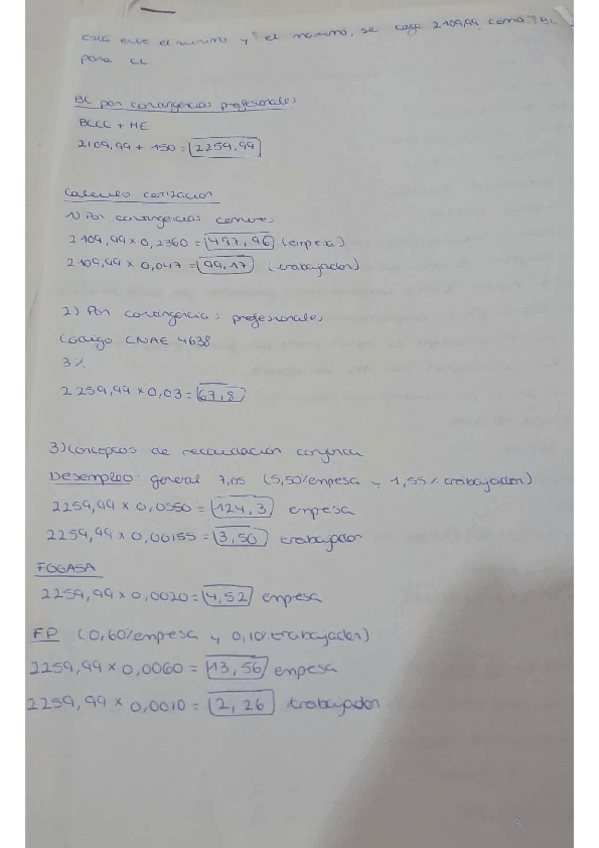 está entre el mínimo y el máximo, se coge 2109,99 como BC
para CC.
BC por contingencias profesionales
BCCC + HE
2109,99 + 150 = 2259,99
Calculo cotización
1) Por contingencias comunes
2109,99 x 0,2360 = 497,96 (empresa)
2109,99 x 0,047 = 99,17 (trabajador)
2) Por contingencias profesionales
Código CNAE 4638
3%
2259,99 x 0,03 = 67,8
3) Conceptos de recaudación conjunta
Desempleo: general 7,05 (5,50% empresa y 1,55% trabajador)
2259,99 x 0,0550 = 124,3 empresa
2259,99 x 0,00155 = 3,50 trabajador
FOGASA
2259,99 x 0,0020 = 4,52 empresa
FP (0,60% empresa y 0,10% trabajador)
2259,99 x 0,0060 = 13,56 empesa
2259,99 x 0,0010 = 2,26 trabajador